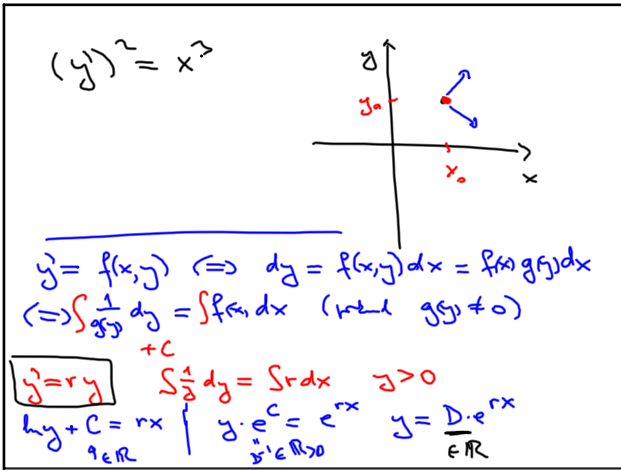 (y')² = x³
y
y₀
x₀
x
y' = f(x,y) <=> dy = f(x,y) dx = f(x) g(y) dx
<=> ∫ 1/g(y) dy = ∫ f(x) dx ( g(y) ≠ 0)
+C
y' = ry ∫ 1/y dy = ∫ r dx y > 0
ln y + C = rx | y · e^C = e^{rx} y = D · e^{rx}
∈ ℝ D^{-1} ∈ ℝ>0 ∈ ℝ